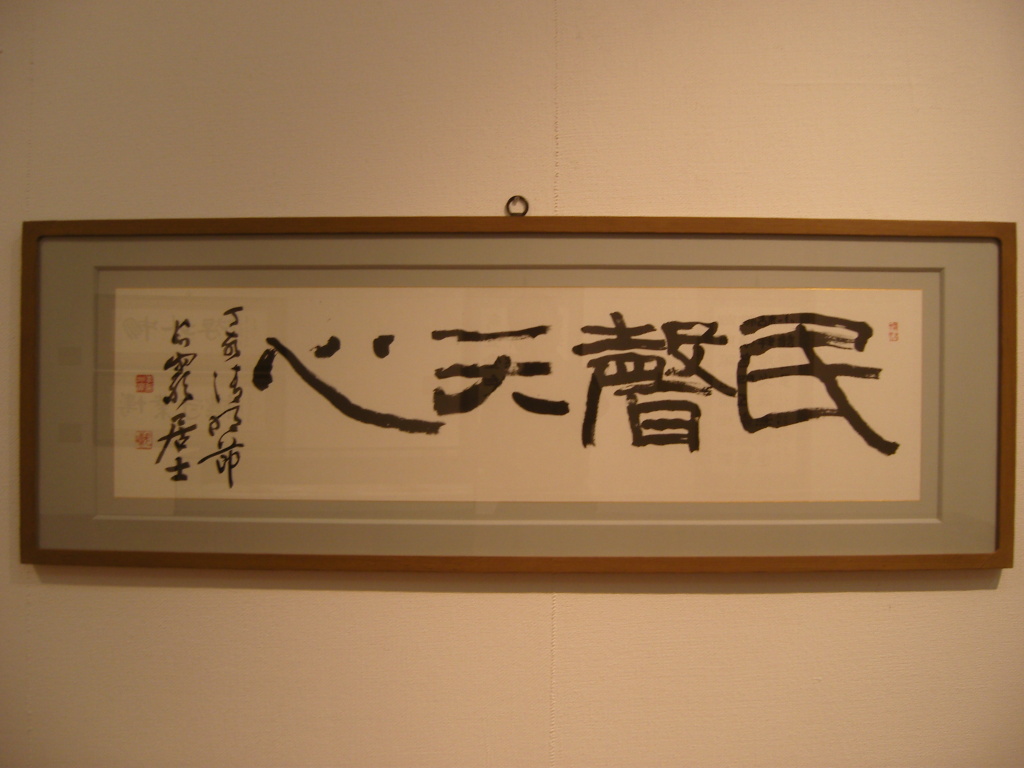 民聲天心
丁亥清明節
居士